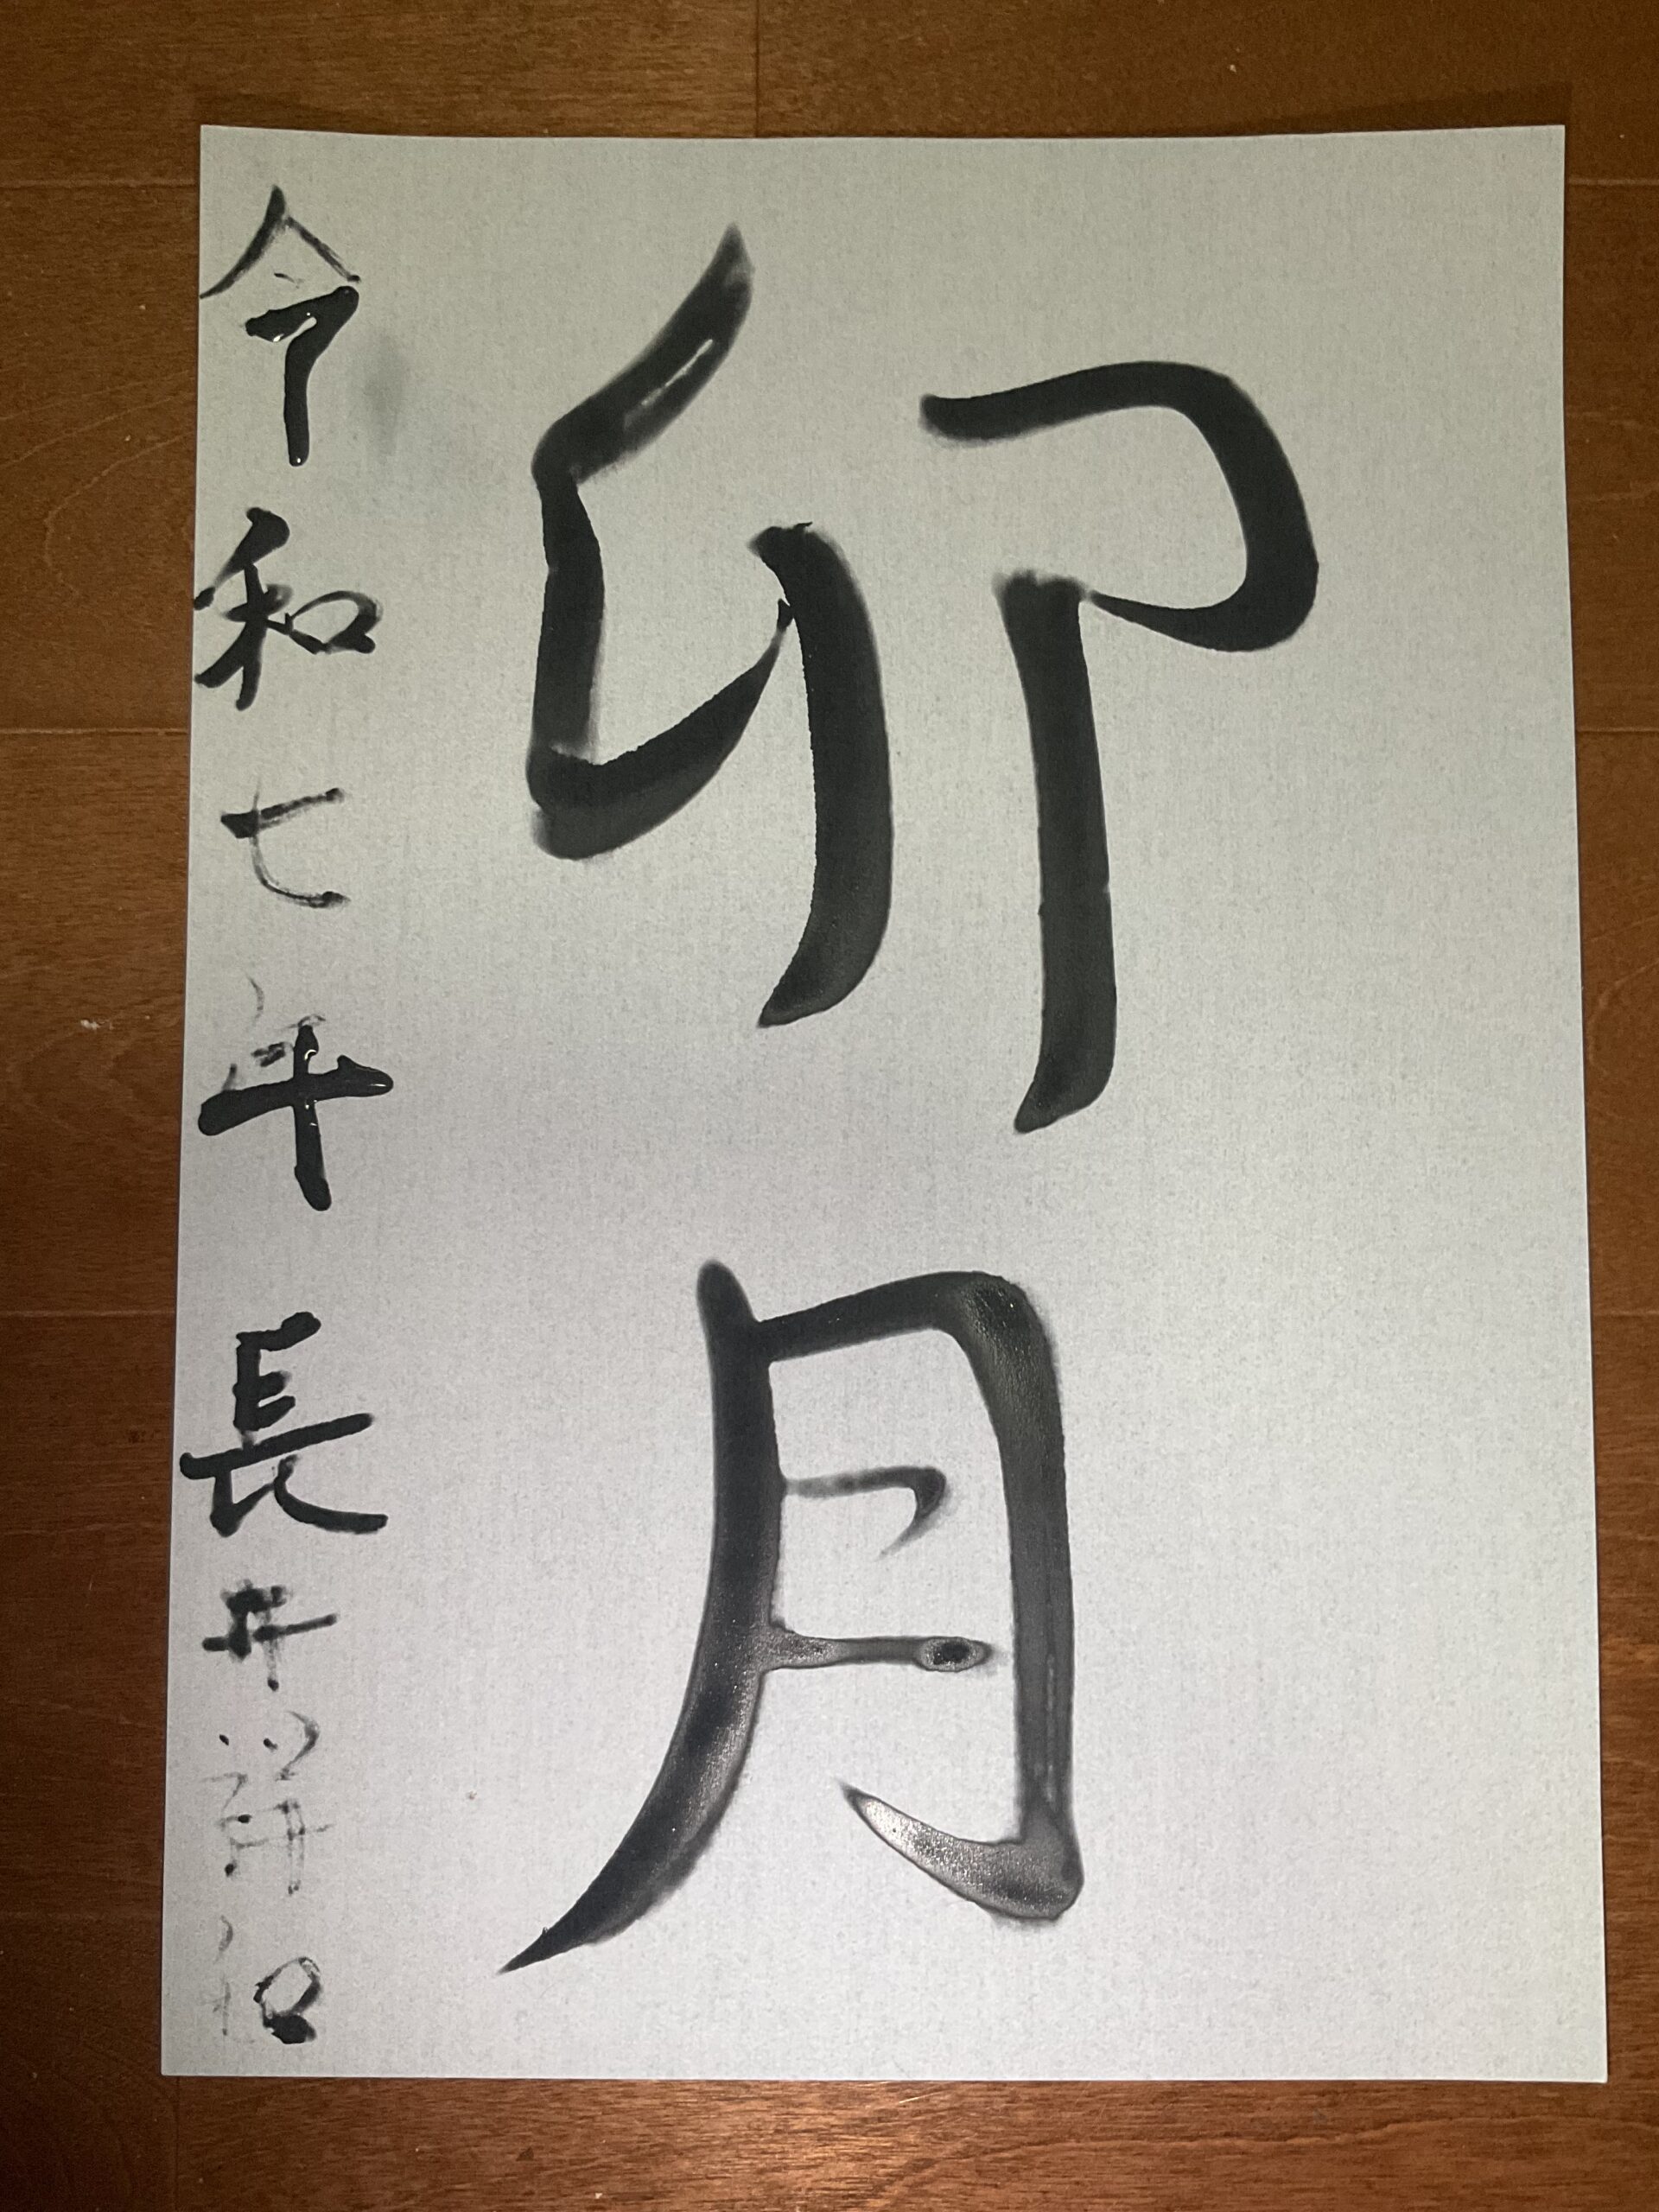 卯月
令和七年 長井